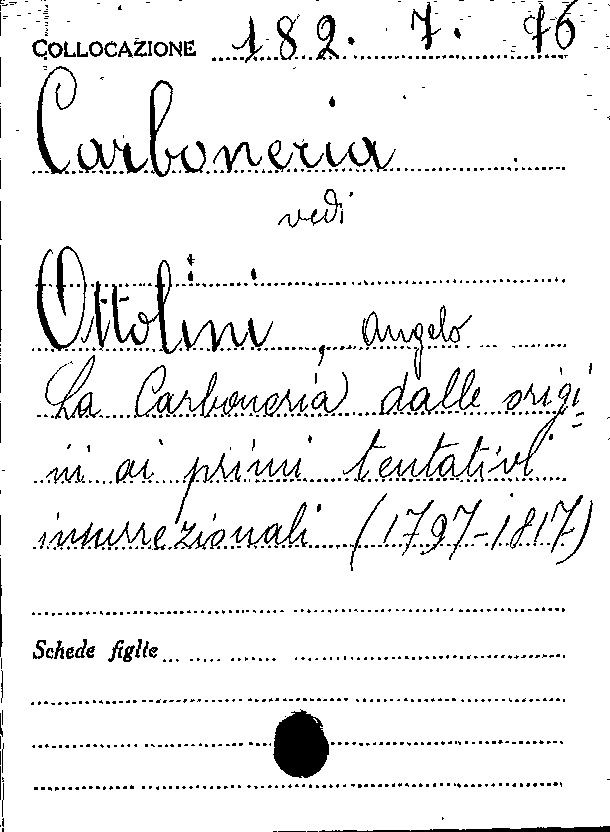 COLLOCAZIONE 182. 7. 76
Carboneria
vedi
Ottolini, Angelo
La Carboneria dalle origi=
ni ai primi tentativi
insurrezionali (1797-1817)
Schede figlie